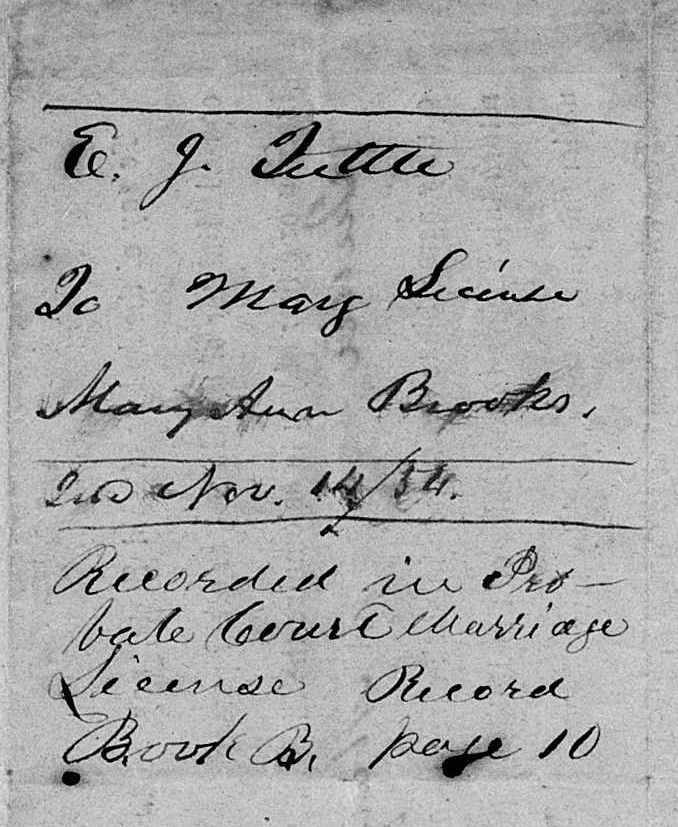 E. J. Tuttle
To Marg License
Mary Ann Brooks.
Issd Nov. 14/54.
Recorded in Pro-
bate Court Marriage
License Record
Book B. page 10